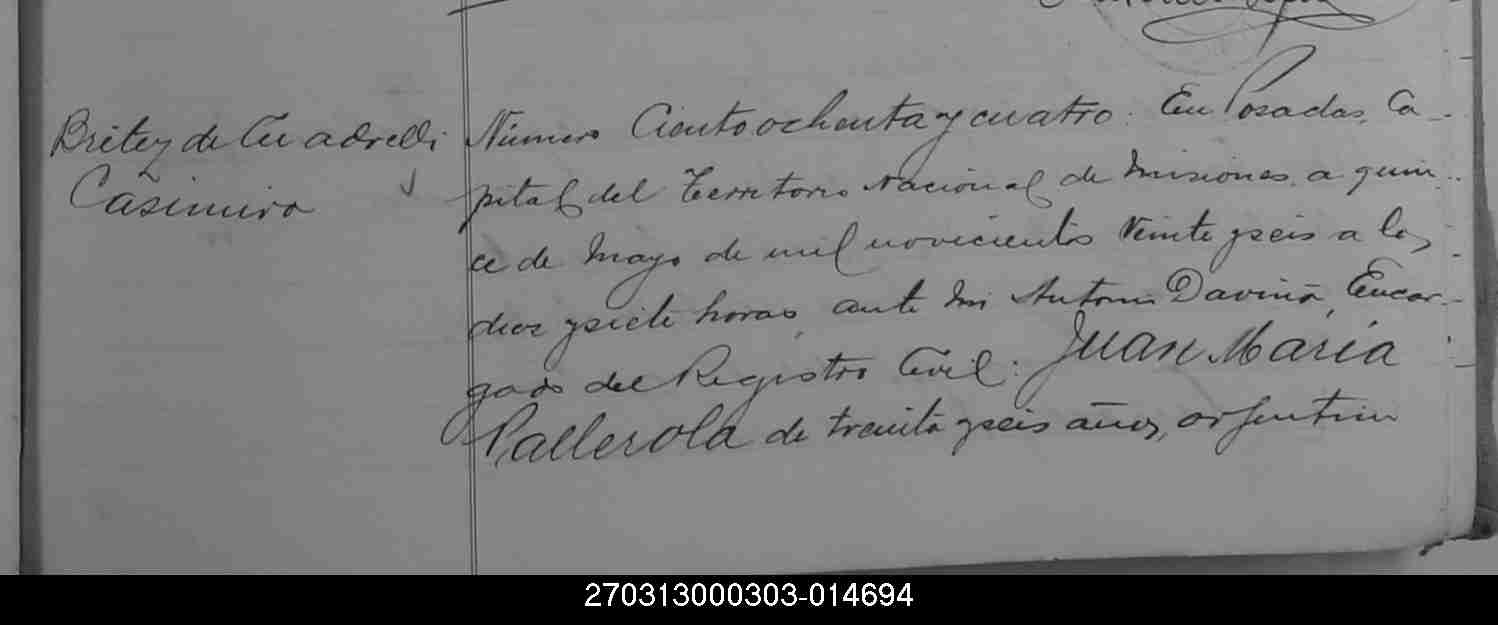 Britez de Cuadrelli
Casimira
Número Ciento ochenta y cuatro. En Posadas, Ca-
pital del Territorio Nacional de Misiones, a quin-
ce de Mayo de mil novecientos veinte y seis a las
diez y siete horas, ante mi Antonio Daviña, Encar-
gado del Registro Civil: Juan María
Pallerola de treinta y seis años, argentino
270313000303-014694